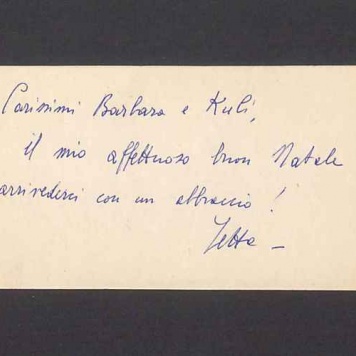 Carissimi Barbara e Kuli,
il mio affettuoso buon Natale
arrivederci con un abbraccio!
Jetta -